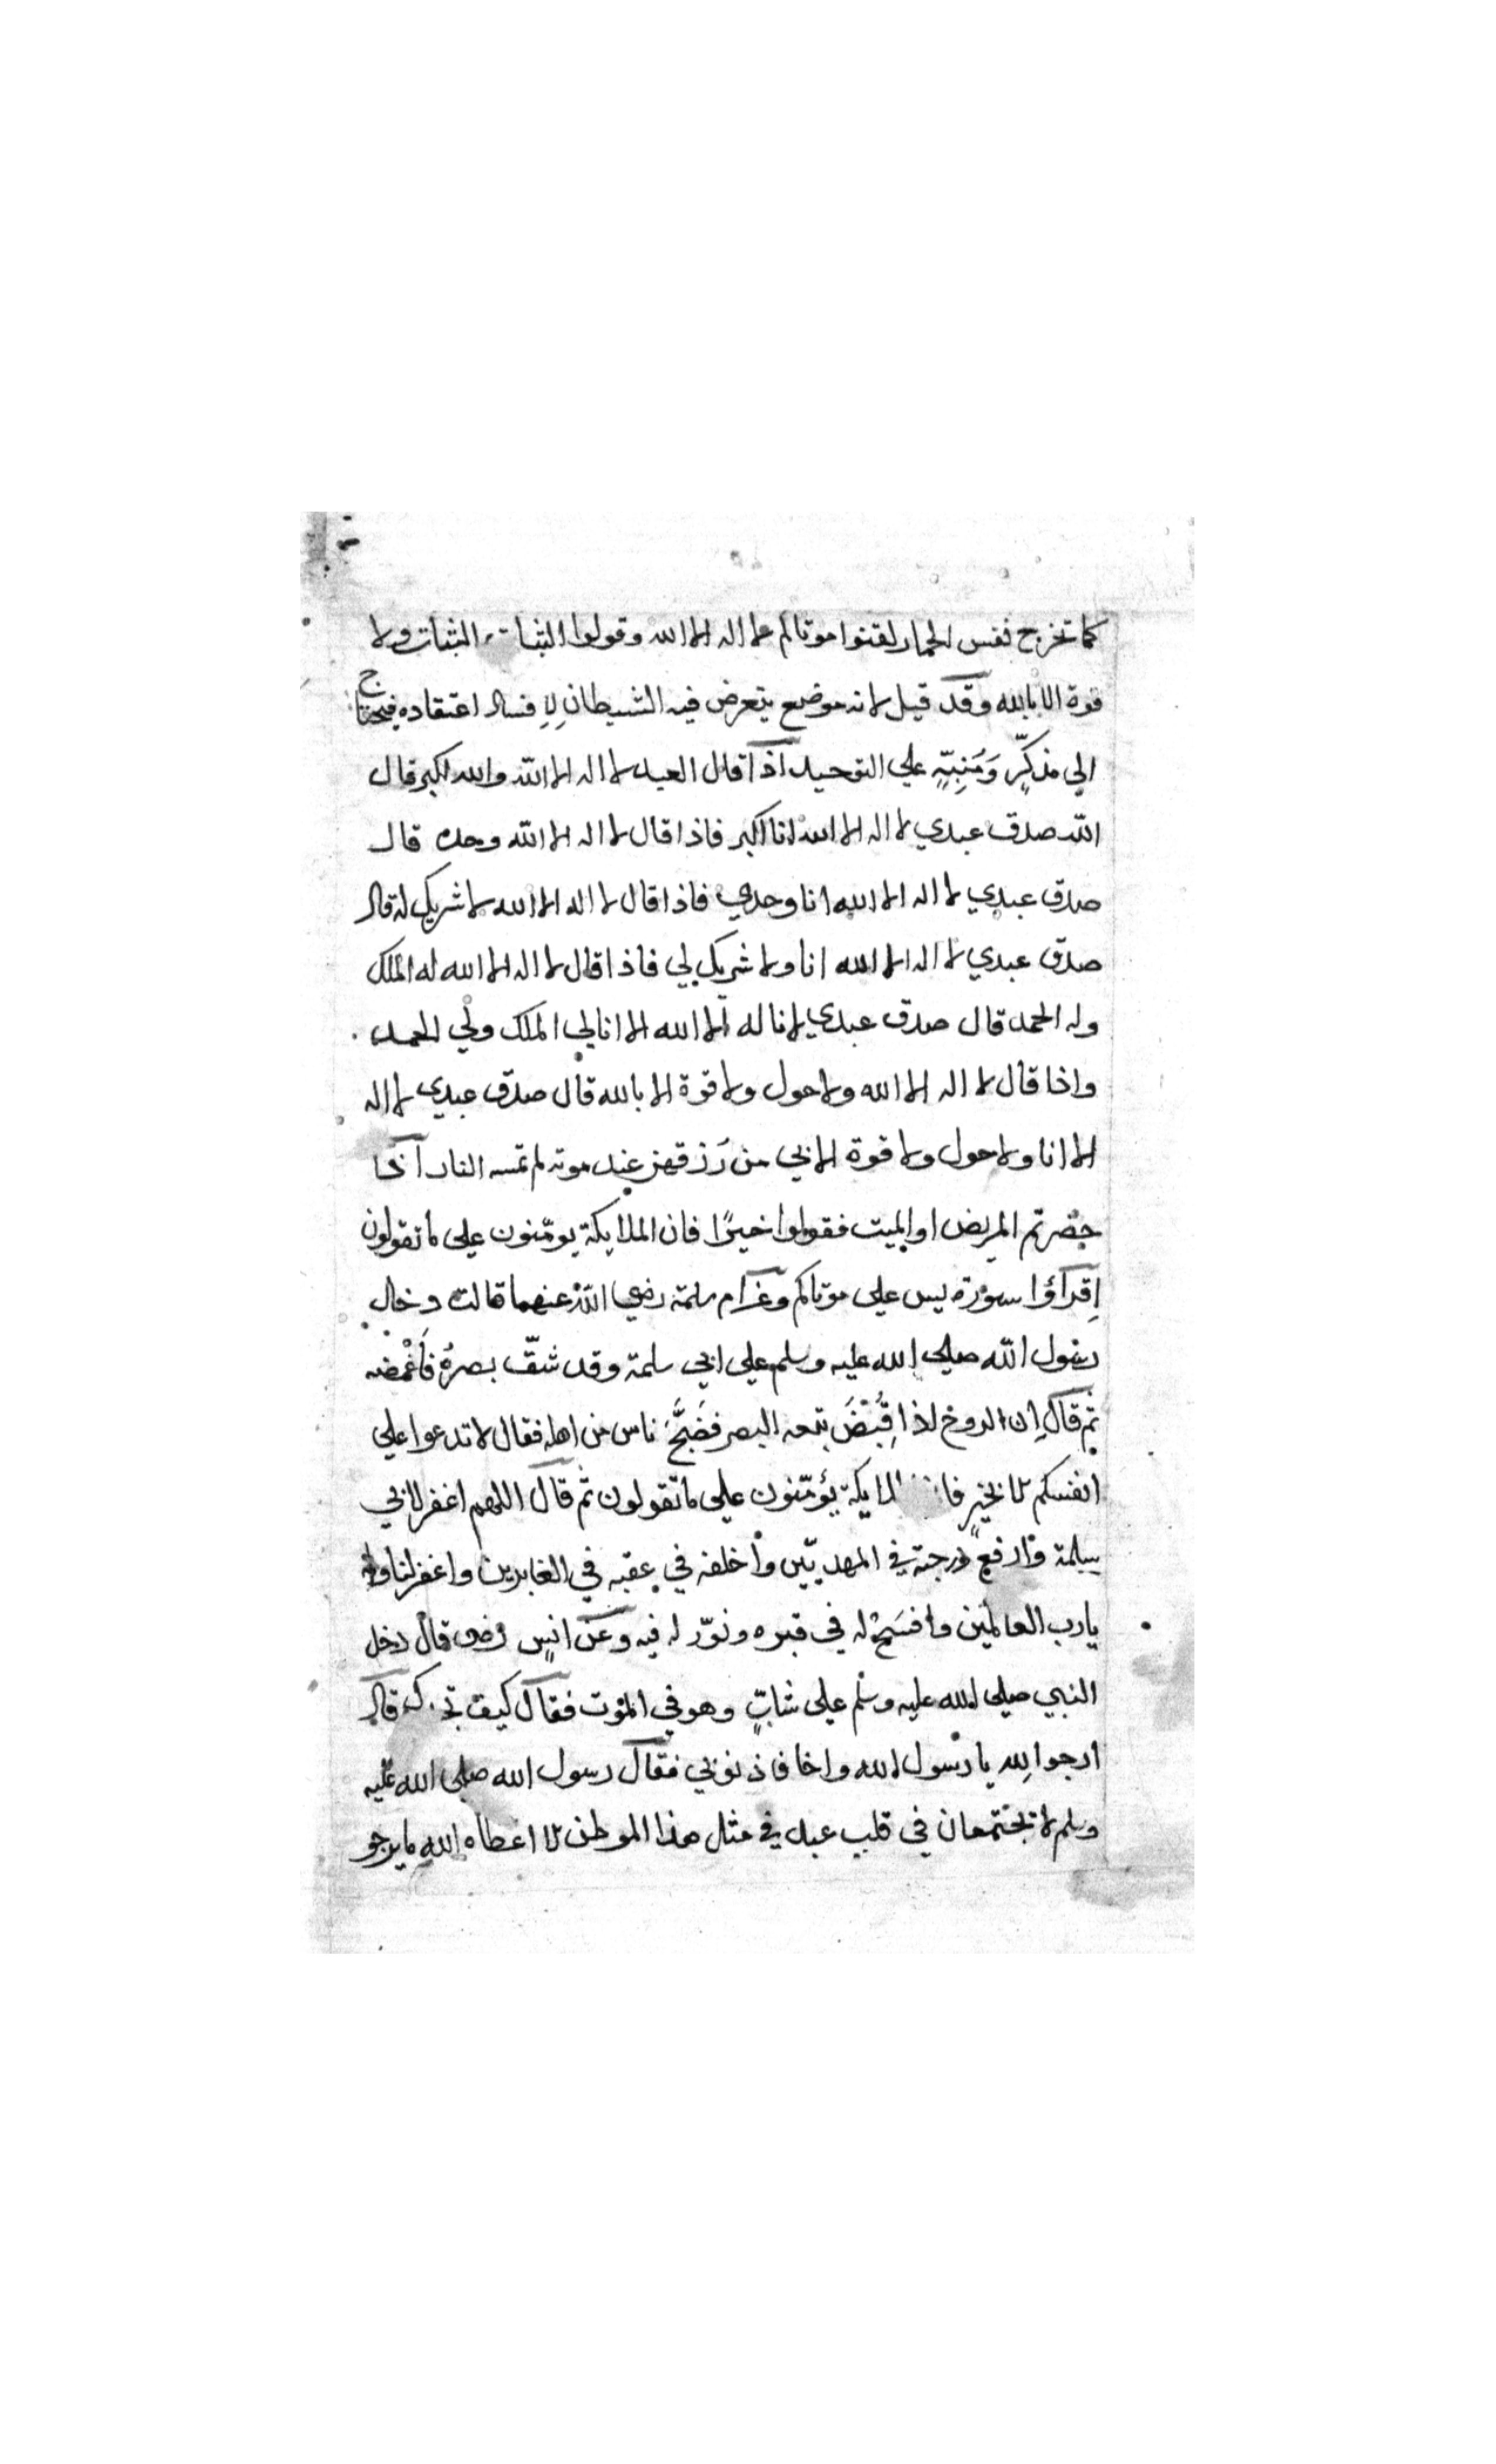 كما تخرج نفس الحمار لقنوا موتاكم لا اله الا الله وقولوا الثبات الثبات ولا
قوة الا بالله وقد قيل لانه موضع يتعرض فيه الشيطان لافساد اعتقاده فيحتاج
الي مذكّرٍ وَمُنبِّهٍ علي التوحيد اذا قال العبد لا اله الا الله والله اكبر قال
الله صدق عبدي لا اله الا الله انا اكبر فاذا قال لا اله الا الله وحده قال
صدق عبدي لا اله الا الله انا وحدي فاذا قال لا اله الا الله لا شريك له قال
صدق عبدي لا اله الا الله انا ولا شريك لي فاذا قال لا اله الا الله له الملك
وله الحمد قال صدق عبدي لا اله الا الله الا انا لي الملك ولي الحمد
واذا قال لا اله الا الله ولا حول ولا قوة الا بالله قال صدق عبدي لا اله
الا انا ولا حول ولا قوة الا بي من رزقهن عند موته لم تمسه النار اذا
حضرتم المريض او الميت فقولوا خيرًا فان الملايكة يومّنون علي ما تقولون
اِقرَاؤا سورة يس علي موتاكم وعن ام سلمة رضي الله عنهما قالت دخل
رسول الله صلي الله عليه وسلم علي ابي سلمة وقد شقّ بصرهُ فَاَغْمضه
ثم قال اِن الروح اذا قُبِضَ تبعه البصر فضَجَّ ناس من اهله فقال لا تدعوا علي
انفسكم الا بخيرٍ فان الملايكة يؤمّنون علي ما تقولون ثم قال اللهم اغفر لابي
سلمة وارفع درجته في المهديّين واخلفه في عقبه في الغابرين واغفر لنا وله
يا رب العالمين وافسَحْ له في قبره ونوّر له فيه وعن انسٍ رضي قال دخل
النبي صلي الله عليه وسلم علي شابٍّ وهو في الموت فقال كيف تجدك قال
ارجوا لله يا رسول الله واخاف ذنوبي فقال رسول الله صلي الله عليه
وسلم لا تجتمعان في قلب عبد في مثل هذا الموطن الا اعطاه الله ما يرجو